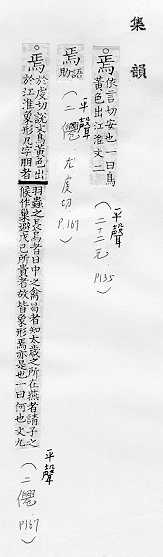 集韻
○焉
依言切安也一曰鳥
黃色出江淮文二
(平聲 二十二元 P135)
焉
語助
(平聲 二僊 尤虔切 P.167)
○焉
於虔切說文焉黃色出
於江淮象形凡字朋者
羽蟲之長烏者日中之禽舄者知太歲之所在燕者請子之
候作巢避戊己所貴者故皆象形焉亦是也一曰何也文九
平聲
(二僊 P167)